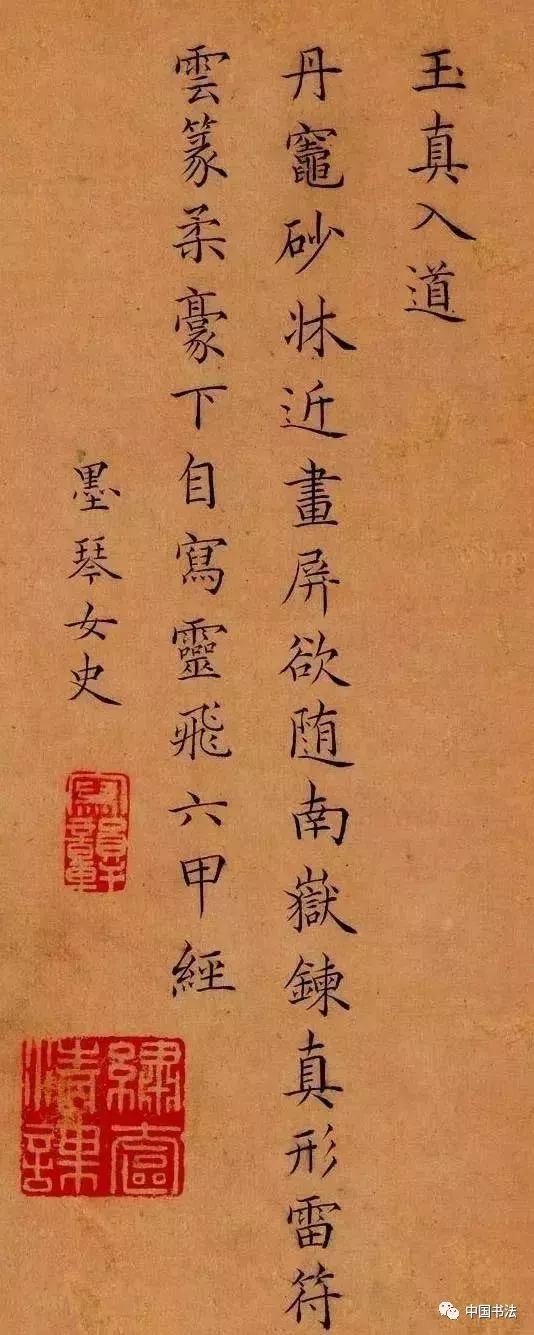 玉真入道
丹竈砂牀近畫屏欲随南嶽鍊真形雷符
雲篆柔豪下自寫靈飛六甲經
墨琴女史
寫韻軒
繡窗清課
中国书法